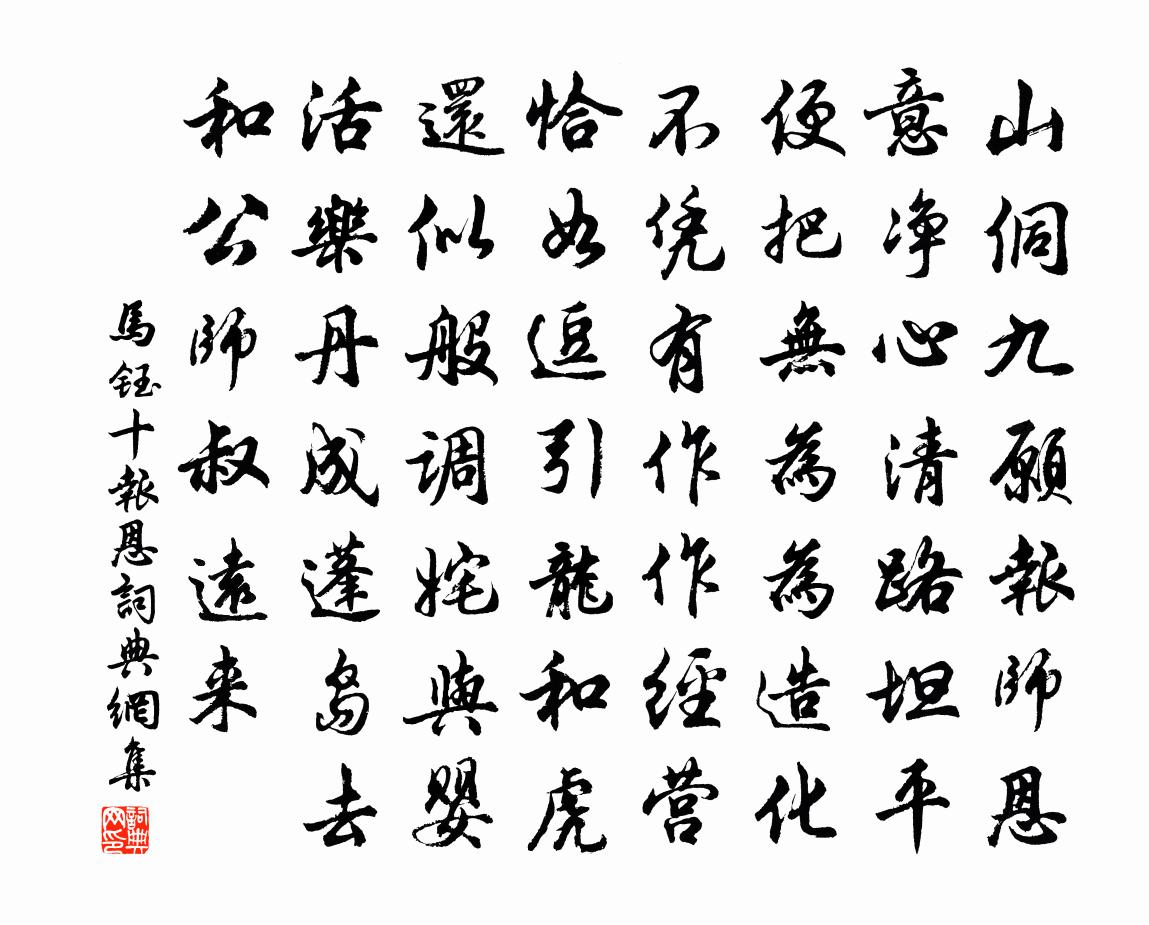 山侗九願報師恩
意净心清路坦平
便把無為為造化
不凭有作作經营
恰如逗引龍和虎
還似般調姹與嬰
活樂丹成蓬島去
和公師叔遠来
馬鈺十報恩詞典網集
詞典网印